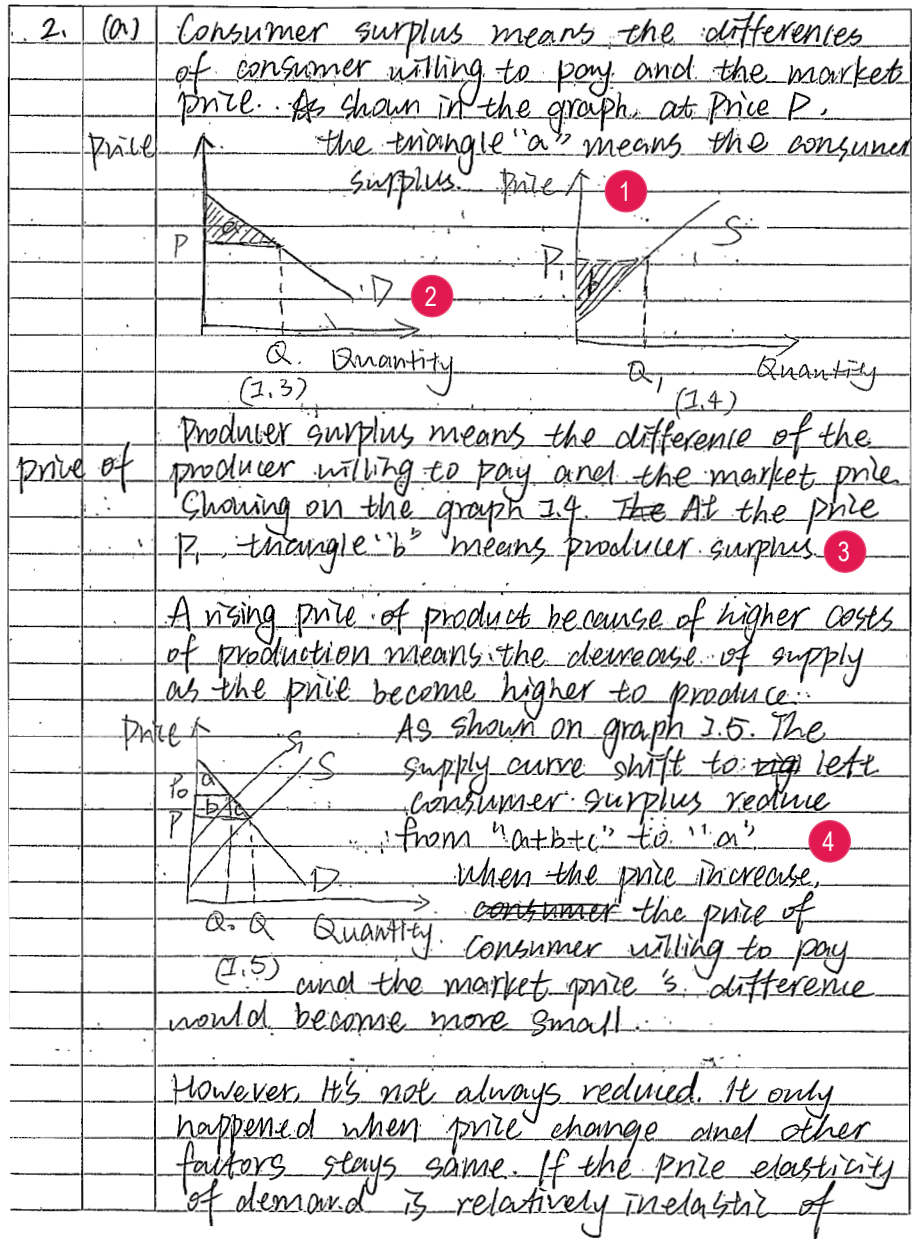 2. (a) Consumer surplus means the differences
of consumer willing to pay and the market
price. As shown in the graph, at Price P,
the triangle "a" means the consumer
surplus.
Price
a
P
D
Q
Quantity
(1.3)
Price
1
2
S
P1
b
Q1
Quantity
(1.4)
Producer surplus means the difference of the
price of producer willing to pay and the market price.
Showing on the graph 1.4. The At the price
P1, triangle "b" means producer surplus. 3
A rising price of product because of higher costs
of production means the decrease of supply
as the price become higher to produce.
Price
S1
S
P0
a
b
c
P
D
Q0 Q
Quantity
(1.5)
As shown on graph 1.5. The
supply curve shift to rig left
consumer surplus reduce
from "a+b+c" to "a" 4
when the price increase,
consumer the price of
consumer willing to pay
and the market price's difference
would become more small.
However, It's not always reduced. It only
happened when price change and other
factors stays same. If the price elasticity
of demand is relatively inelastic of